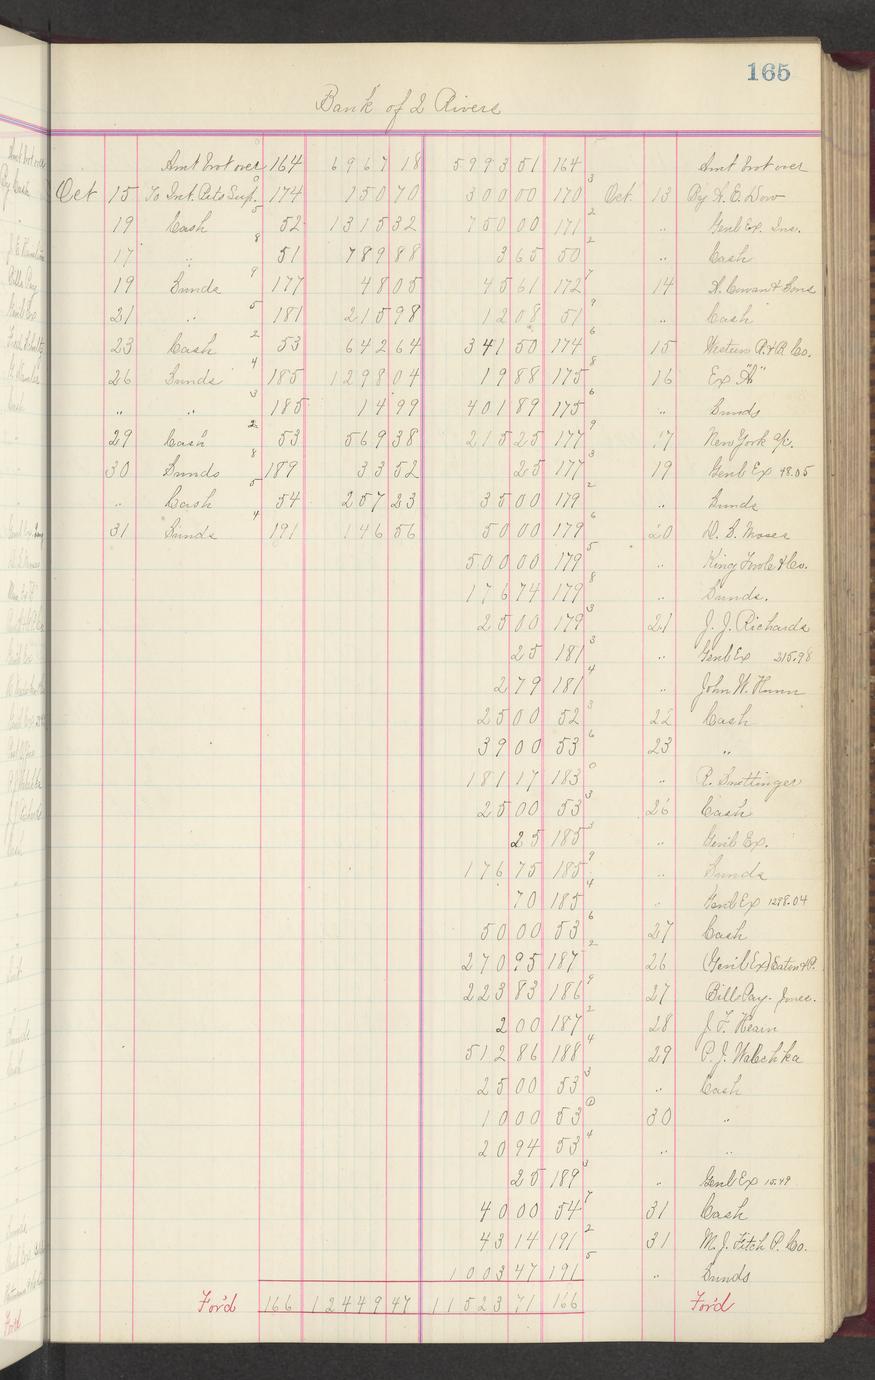 165
Bank of 2 Rivers
Amt brot over 164 6967 18 5993 51 164 Amt brot over
Oct 15 To Int. Rets Susp. 0 174 150 70 300 00 170 3 Oct 13 By H. E. Dow
19 Cash 5 52 1315 32 750 00 171 2 " Genl Ex. Ins.
17 " 8 51 789 88 3 65 50 2 " Cash
19 Sunds 9 177 48 05 45 61 172 7 14 A. Cowan & Sons
21 " 5 181 215 98 12 08 51 9 " Cash
23 Cash 2 53 642 64 341 50 174 6 15 Western P. & P. Co.
26 Sunds 4 185 1298 04 19 88 175 8 16 Ex "A"
" " 3 185 14 99 401 89 175 6 " Sunds
29 Cash 2 53 569 38 215 25 177 9 17 New York a/c.
30 Sunds 8 189 33 52 25 177 3 19 Genl Ex 48.05
" Cash 5 54 257 23 35 00 179 2 " Sunds
31 Sunds 4 191 146 56 50 00 179 6 20 D. S. Moses
500 00 179 5 " King Fowle & Co.
176 74 179 8 " Sunds.
25 00 179 3 21 J. J. Richards
25 181 3 " Genl Ex 215.98
2 79 181 4 " John W. Hunn
25 00 52 3 22 Cash
39 00 53 6 23 "
181 17 183 0 " R. Suettinger
25 00 53 3 26 Cash
25 185 3 " Genl Ex.
176 75 185 9 " Sunds
70 185 4 " Genl Ex 1298.04
50 00 53 6 27 Cash
270 95 187 2 26 (Genl Ex) Eaton & P.
223 83 186 9 27 Bills Pay. Jones.
2 00 187 2 28 J. F. Hearn
512 86 188 4 29 P. J. Walechka
25 00 53 3 " Cash
10 00 53 30 "
20 94 53 4 " "
25 189 3 " Genl Ex 15.49
40 00 54 7 31 Cash
43 14 191 2 31 M. J. Fitch P. Co.
1003 47 191 5 " Sunds
For'd 166 12449 47 11523 71 166 For'd